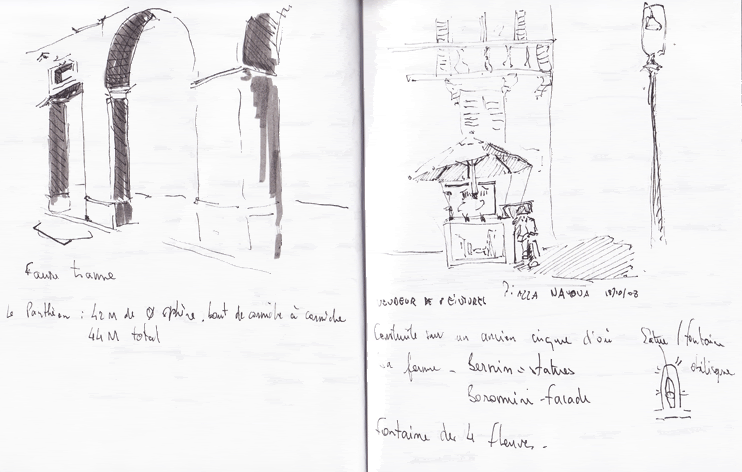 Fausse trame
Le Panthéon : 42 m de Ø sphère. bout de corniche à corniche
44 M total
VENDEUR DE PEINTURES PIAZZA NAVONA
Construite sur un ancien cirque d'où
sa forme - Bernin = statues
Boromini - facade
Fontaine des 4 fleuves -
/ fontaine
obélisque